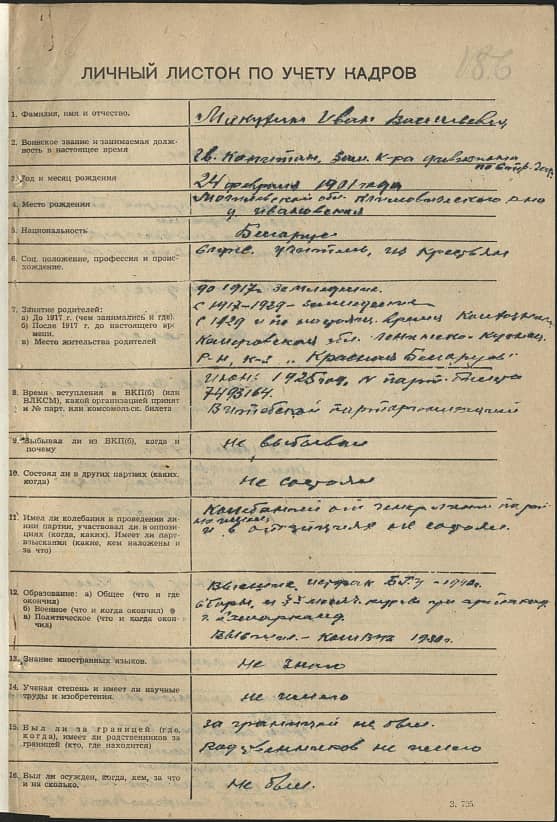 186
ЛИЧНЫЙ ЛИСТОК ПО УЧЕТУ КАДРОВ
1. Фамилия, имя и отчество.
Иван Васильевич
2. Воинское звание и занимаемая долж-
ность в настоящее время
Гв. Капитан, зам. к-ра дивизиона
3. Год и месяц рождения
24 февраля 1901 года
4. Место рождения
Могилевской обл. Климовического р-на
д. Ивановская
5. Национальность
Беларус
6. Соц. положение, профессия и проис-
хождение.
служ. учитель, из крестьян
7. Занятие родителей:
а) До 1917 г. (чем занимались и где).
б) После 1917 г. до настоящего вре
мени.
в) Место жительства родителей
до 1917 г. земледелие.
с 1917-1929- земледелие
с 1929 и по настоящ. время
обл. Ленинско-Кузнец.
р-н, к-з „Красный Беларус"
8. Время вступления в ВКП(б) (или
ВЛКСМ), какой организацией принят
и № парт. или комсомольск. билета
1925 год, N парт. билета
7493164.
Витебской парторганизацией
9. Выбывал ли из ВКП(б), когда и
почему
не выбывал
10. Состоял ли в других партиях (каких,
когда)
не состоял
11. Имел ли колебания в проведении ли-
нии партии, участвовал ли в оппози-
циях (когда, каких). Имеет ли парт-
взыскания (какие, кем наложены и
за что)
Колебаний от генеральной
и в оппозициях не состоял.
12. Образование: а) Общее (что и где
окончил)
б) Военное (что и когда окончил)
в) Политическое (что и когда окон-
чил)
Высшее, БГУ - 1940г.
13. Знание иностранных языков.
не знаю
14. Ученая степень и имеет ли научные
труды и изобретения.
не имею
15. Был ли за границей (где,
когда), имеет ли родственников за
границей (кто, где находится)
за границей не был.
родственников не имею
16. Был ли осужден, когда, кем, за что
и на сколько.
не был.
З. 735